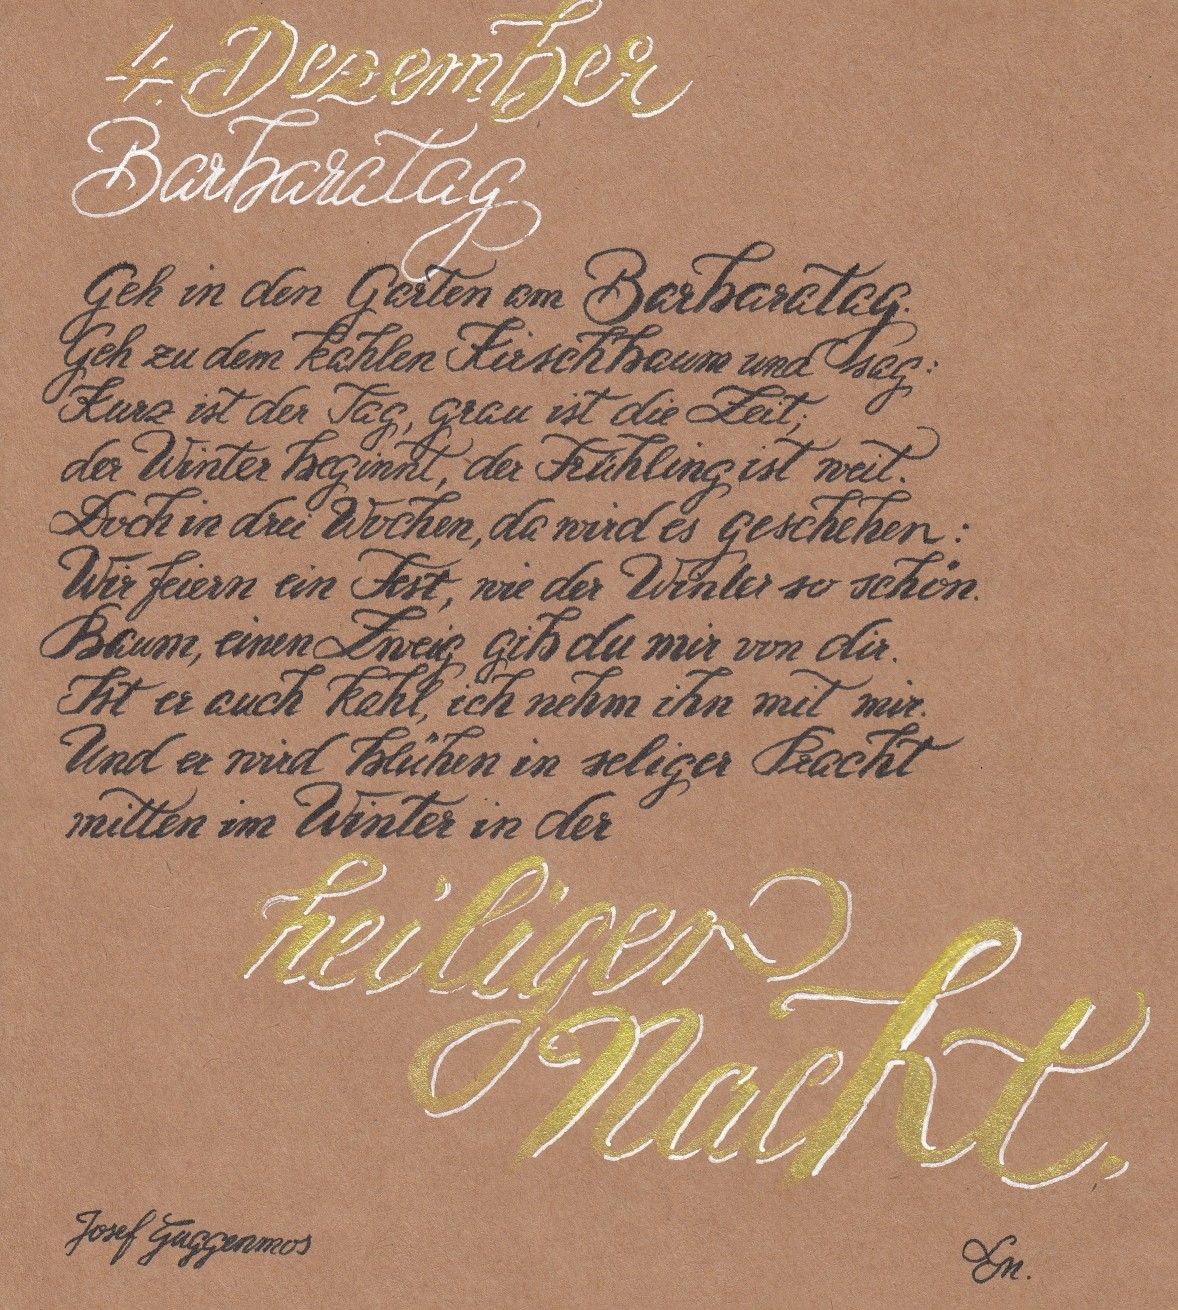 4. Dezember
Barbaratag
Geh in den Garten am Barbaratag.
Geh zu dem kahlen Kirschbaum und sag:
Kurz ist der Tag, grau ist die Zeit;
der Winter beginnt, der Frühling ist weit.
Doch in drei Wochen, da wird es geschehen:
Wir feiern ein Fest, wie der Winter so schön.
Baum, einen Zweig gib du mir von dir.
Ist er auch kahl, ich nehm ihn mit mir.
Und er wird blühen in seliger Pracht
mitten im Winter in der
heiligen
Nacht.
Josef Guggenmos